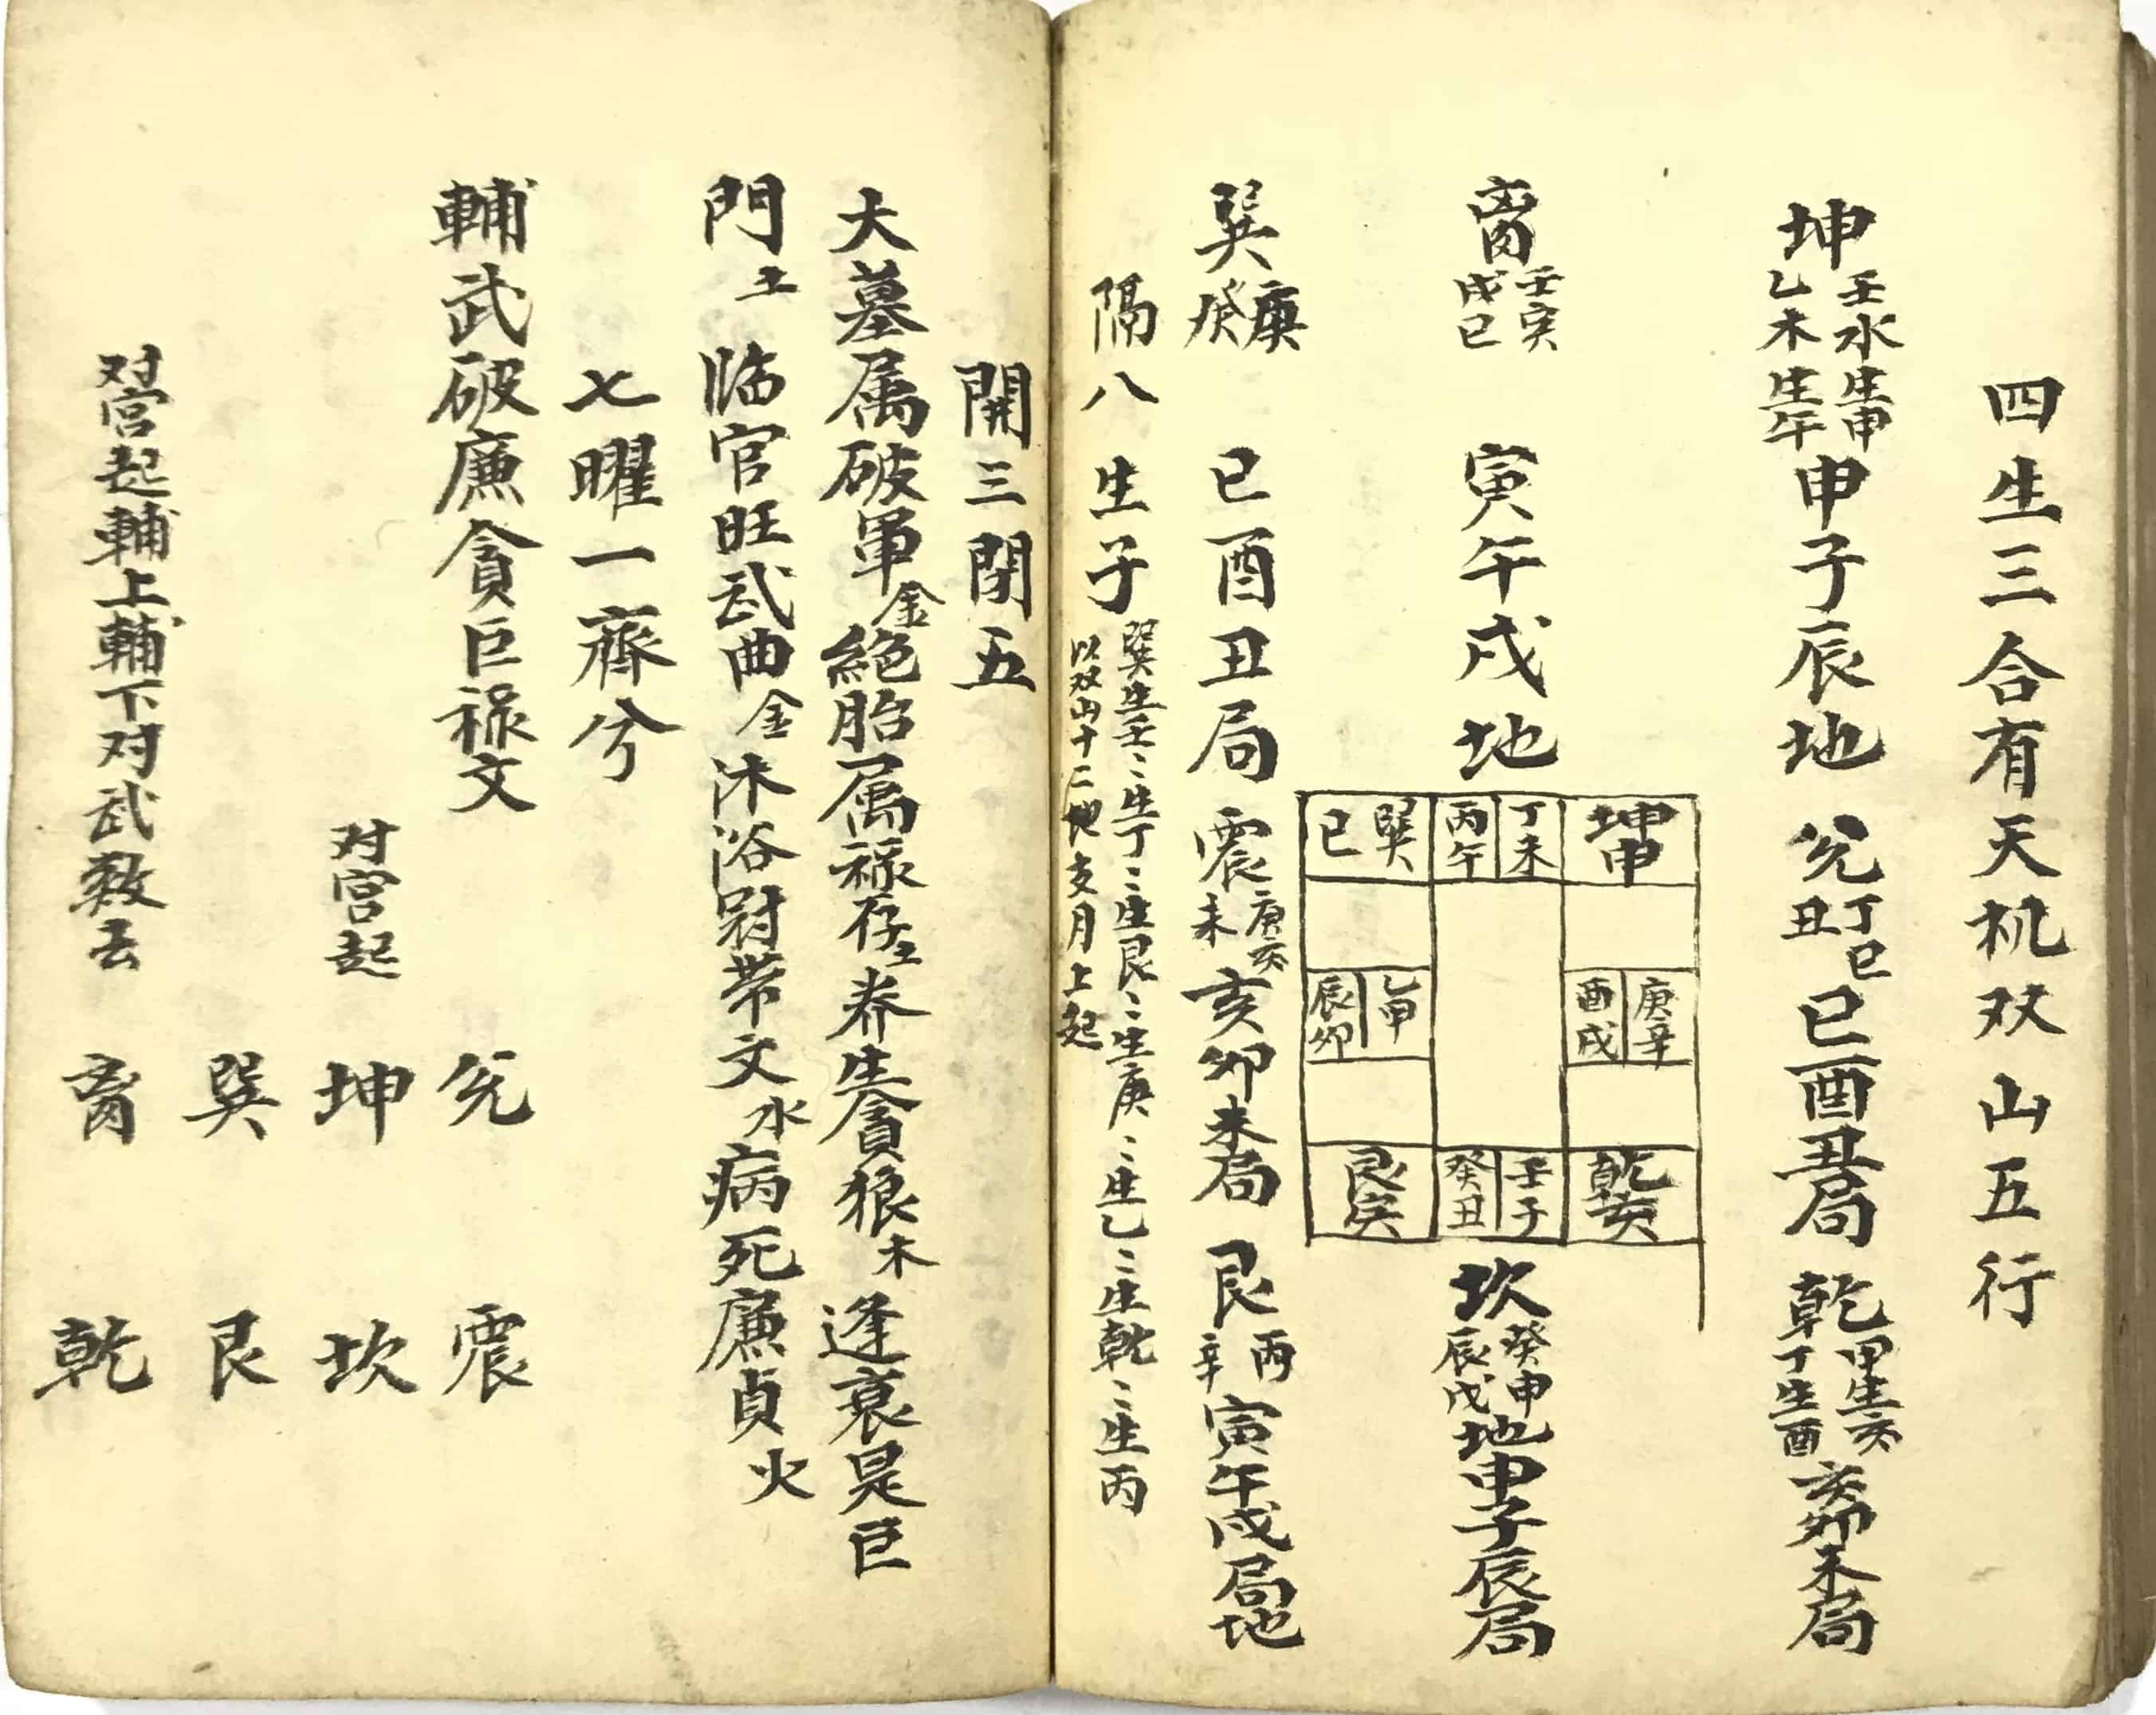 四生三合有天机双山五行
坤
壬水生申
乙木生午
申子辰地
兊
丁巳
丑
巳酉丑局
乾
甲生亥
丁生酉
亥卯未局
离
壬寅
戌巳
寅午戌地
坎
癸申
辰戊
地申子辰局
坤申
丁未
丙午
巽
巳
庚辛
酉戌
乙甲
辰卯
乾亥
壬子
癸丑
艮寅
巽
庚
癸
巳酉丑局
震
庚亥
未
亥卯未局
艮
丙
辛
寅午戌局地
隔八生子
巽生壬〻生丁〻生艮〻生庚〻生乙〻生乾〻生丙
以双山十二地支月上起
開三閉五
大墓属破軍金絕胎属禄存土养生貪狼木逢衰是巨
門土临官旺武曲金沐浴冠带文水病死廉貞火
七曜一齊兮
輔武破廉貪巨禄文
兊 震
对宫起
坤 坎
巽 艮
离 乾
对宫起輔上輔下对武数去